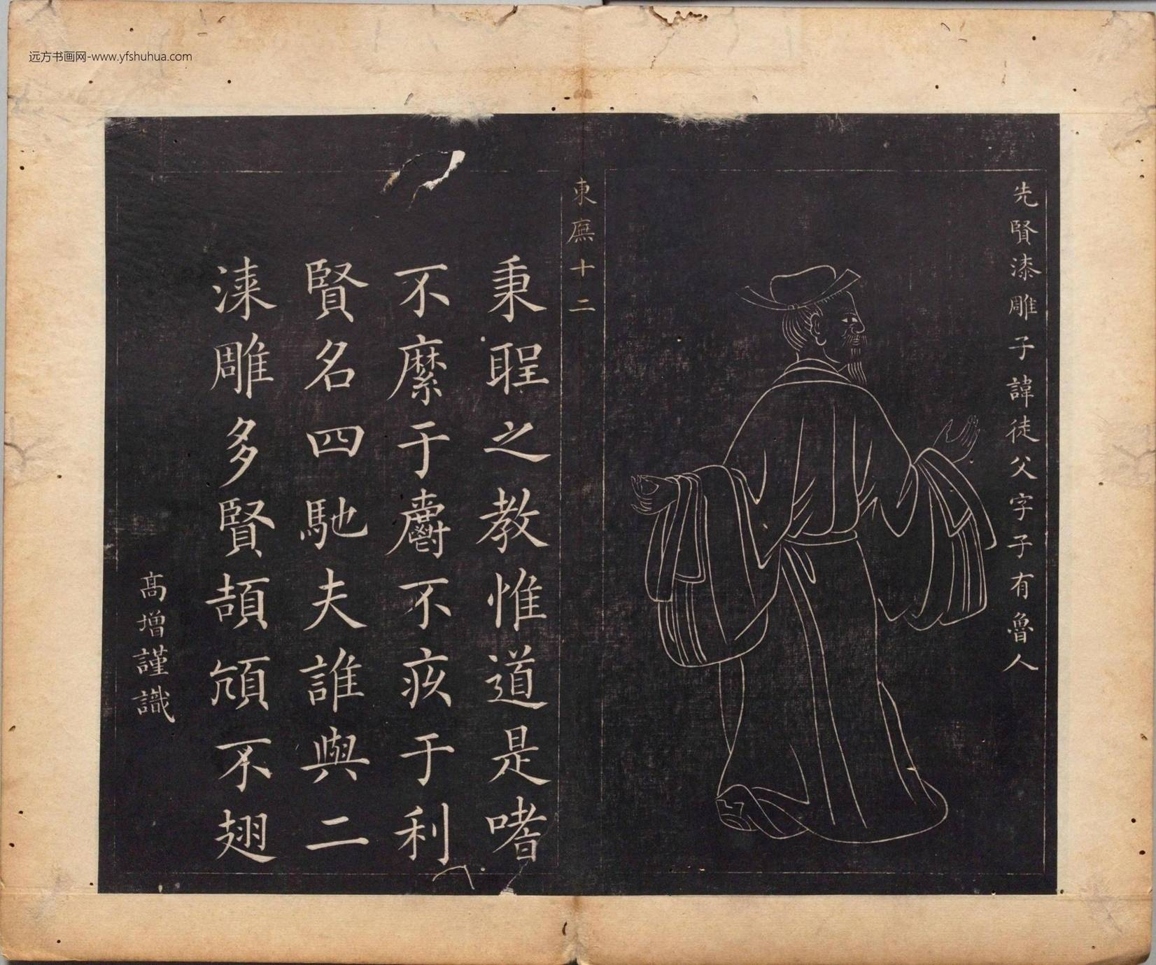 远方书画网-www.yfshuhua.com
先賢漆雕子諱徒父字子有魯人
東廡十二
秉聖之教惟道是嗜
不縻于爵不疚于利
賢名四馳夫誰與二
漆雕多賢頡頏不翅
高增謹識